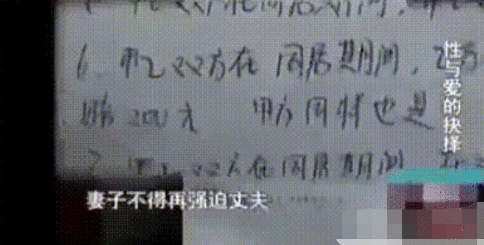 6. 甲乙双方在同居期间，乙方
200元 甲方同样也是
7. 甲乙双方在同居期间
性与爱的抉择
妻子不得再强迫丈夫